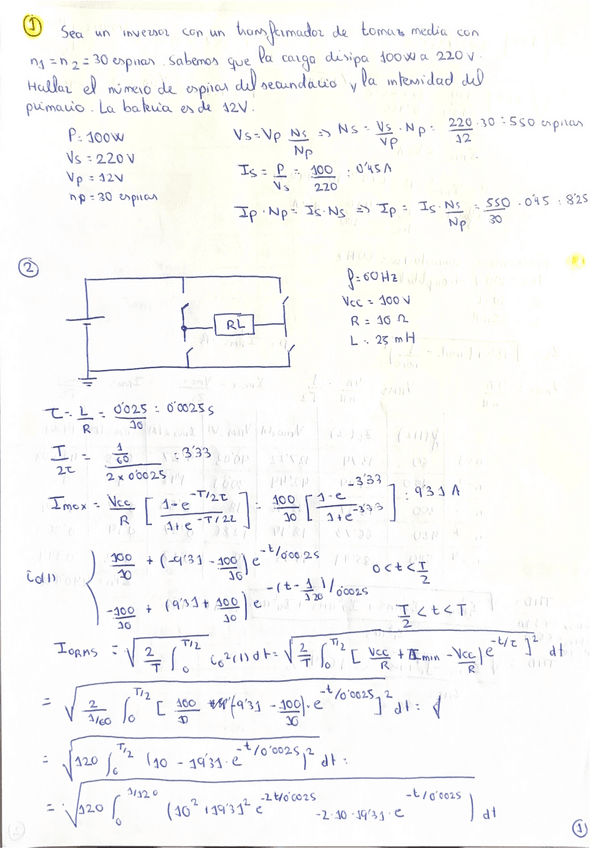 ① Sea un inversor con un transformador de toma media con
n1 = n2 = 30 espiras. Sabemos que la carga disipa 100w a 220 v.
Hallar el número de espiras del secundario y la intensidad del
primario. La bateria es de 12V.
P = 100W
Vs = 220 V
Vp = 12V
np = 30 espiras
Vs = Vp Ns/Np => Ns = Vs/Vp · Np = 220/12 · 30 = 550 espiras
Is = P/Vs = 100/220 = 0'45 A
Ip · Np = Is · Ns => Ip = Is · Ns/Np = 550/30 · 0'45 = 8'25
②
RL
f = 60 Hz
Vcc = 100 V
R = 10 Ω
L = 25 mH
τ = L/R = 0'025/10 = 0'0025 s
T/2τ = (1/60)/(2 x 0'0025) = 3'33
Imax = Vcc/R [(1 - e^(-T/2τ))/(1 + e^(-T/2τ))] = 100/10 [(1 - e^(-3'33))/(1 + e^(-3'33))] = 9'31 A
io(t) { 100/10 + (-9'31 - 100/10) e^(-t/0'0025) 0 < t < T/2
-100/10 + (9'31 + 100/10) e^(-(t - 1/120)/0'0025) T/2 < t < T
IoRMS = √(2/T ∫₀^(T/2) io²(t) dt = √(2/T ∫₀^(T/2) [Vcc/R + (Imin - Vcc/R) e^(-t/τ)]² dt
= √(2/(1/60) ∫₀^(T/2) [100/10 + (-9'31 - 100/10) · e^(-t/0'0025)]² dt = √
= √(120 ∫₀^(T/2) (10 - 19'31 · e^(-t/0'0025))² dt =
= √(120 ∫₀^(1/120) (10² + 19'31² e^(-2t/0'0025) - 2·10·19'31 · e^(-t/0'0025)) dt
①